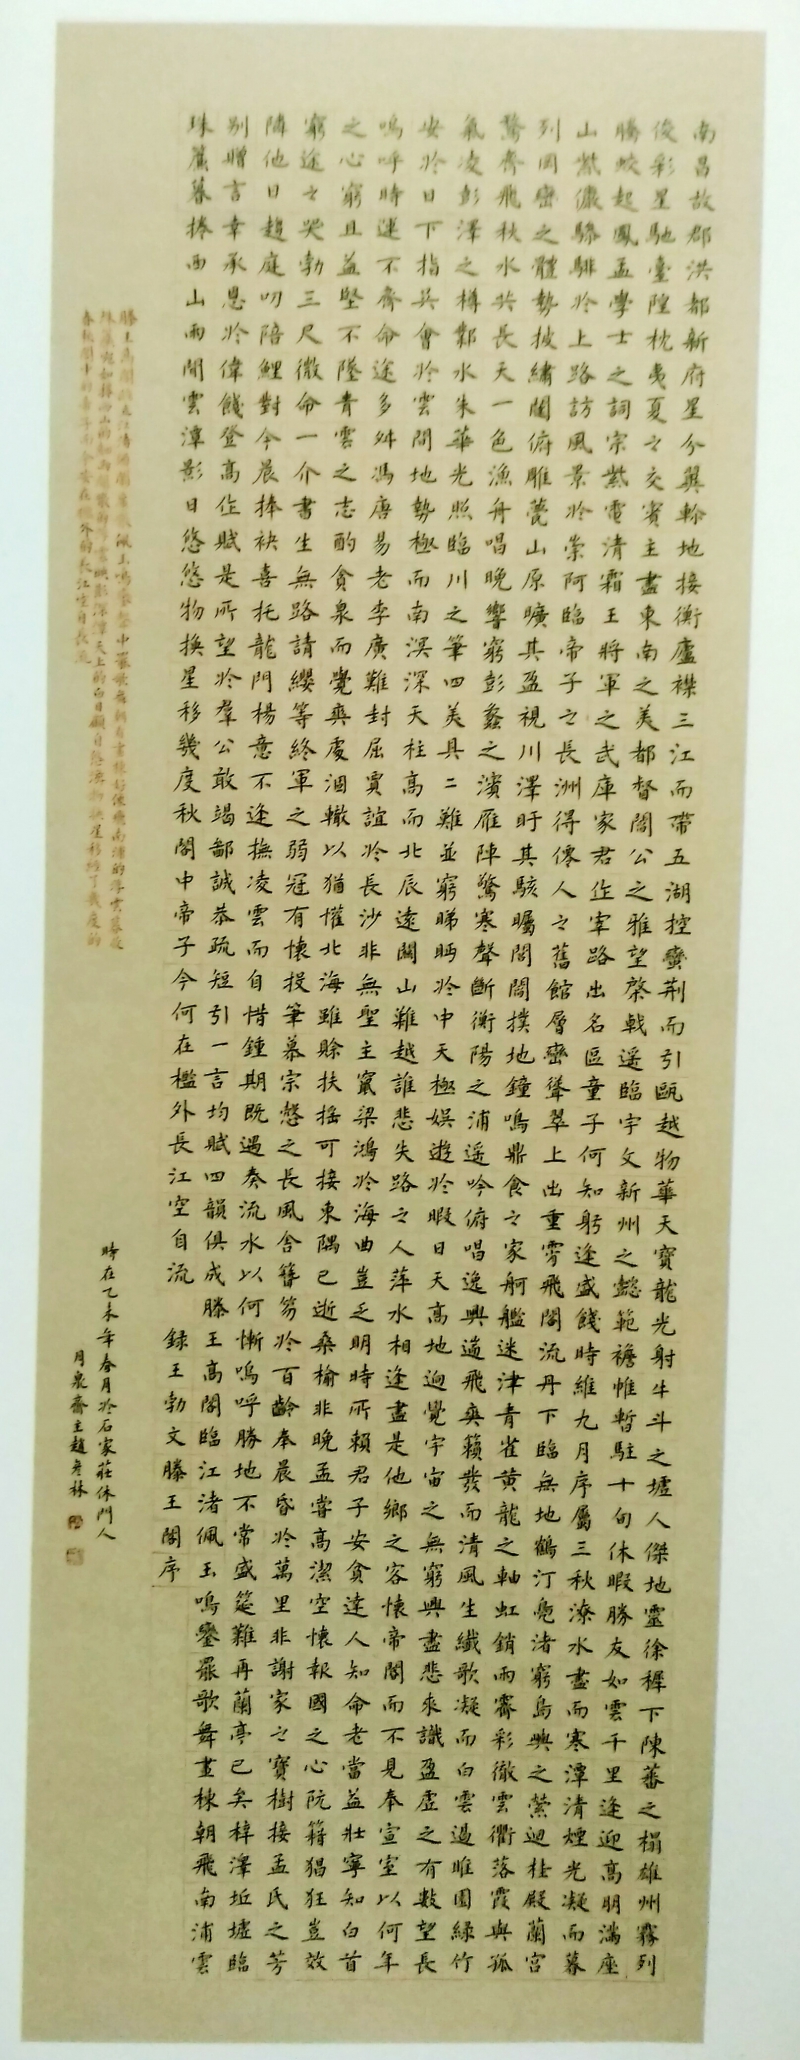 南昌故郡洪都新府星分翼軫地接衡廬襟三江而帶五湖控蠻荊而引甌越物華天寶龍光射牛斗之墟人傑地靈徐穉下陳蕃之榻雄州霧列
俊彩星馳臺隍枕夷夏之交賓主盡東南之美都督閻公之雅望棨戟遙臨宇文新州之懿範襜帷暫駐十旬休暇勝友如雲千里逢迎高明滿座
騰蛟起鳳孟學士之詞宗紫電清霜王將軍之武庫家君作宰路出名區童子何知躬逢盛餞時維九月序屬三秋潦水盡而寒潭清煙光凝而暮
山紫儼驂騑於上路訪風景於崇阿臨帝子之長洲得僊人之舊館層巒聳翠上出重霄飛閣流丹下臨無地鶴汀鳧渚窮島嶼之縈迴桂殿蘭宮
列岡巒之體勢披繡闥俯雕甍山原曠其盈視川澤盱其駭矚閭閻撲地鐘鳴鼎食之家舸艦迷津青雀黃龍之軸虹銷雨霽彩徹雲衢落霞與孤
鶩齊飛秋水共長天一色漁舟唱晚響窮彭蠡之濱雁陣驚寒聲斷衡陽之浦遙吟俯唱逸興遄飛爽籟發而清風生纖歌凝而白雲遏睢園綠竹
氣凌彭澤之樽鄴水朱華光照臨川之筆四美具二難並窮睇眄於中天極娛遊於暇日天高地迥覺宇宙之無窮興盡悲來識盈虛之有數望長
安於日下指吳會於雲間地勢極而南溟深天柱高而北辰遠關山難越誰悲失路之人萍水相逢盡是他鄉之客懷帝閽而不見奉宣室以何年
嗚呼時運不齊命途多舛馮唐易老李廣難封屈賈誼於長沙非無聖主竄梁鴻於海曲豈乏明時所賴君子安貧達人知命老當益壯寧知白首
之心窮且益堅不墜青雲之志酌貪泉而覺爽處涸轍以猶懽北海雖賒扶搖可接東隅已逝桑榆非晚孟嘗高潔空懷報國之心阮籍猖狂豈效
窮途之哭勃三尺微命一介書生無路請纓等終軍之弱冠有懷投筆慕宗愨之長風舍簪笏於百齡奉晨昏於萬里非謝家之寶樹接孟氏之芳
隣他日趨庭叨陪鯉對今晨捧袂喜托龍門楊意不逢撫凌雲而自惜鍾期既遇奏流水以何慚嗚呼勝地不常盛筵難再蘭亭已矣梓澤坵墟臨
別贈言幸承恩於偉餞登高作賦是所望於羣公敢竭鄙誠恭疏短引一言均賦四韻俱成滕王高閣臨江渚佩玉鳴鑾罷歌舞畫棟朝飛南浦雲
珠簾暮捲西山雨閒雲潭影日悠悠物換星移幾度秋閣中帝子今何在檻外長江空自流 錄王勃文滕王閣序
滕王高閣 佩玉鳴 南浦的浮雲暮夜
珠簾 西山的 天上的白日 物換星移 了幾度的
春秋閣中的帝子而今安在檻外的長江空自長流
時在乙未年春月於石家莊休門人
月泉齋主趙彥林